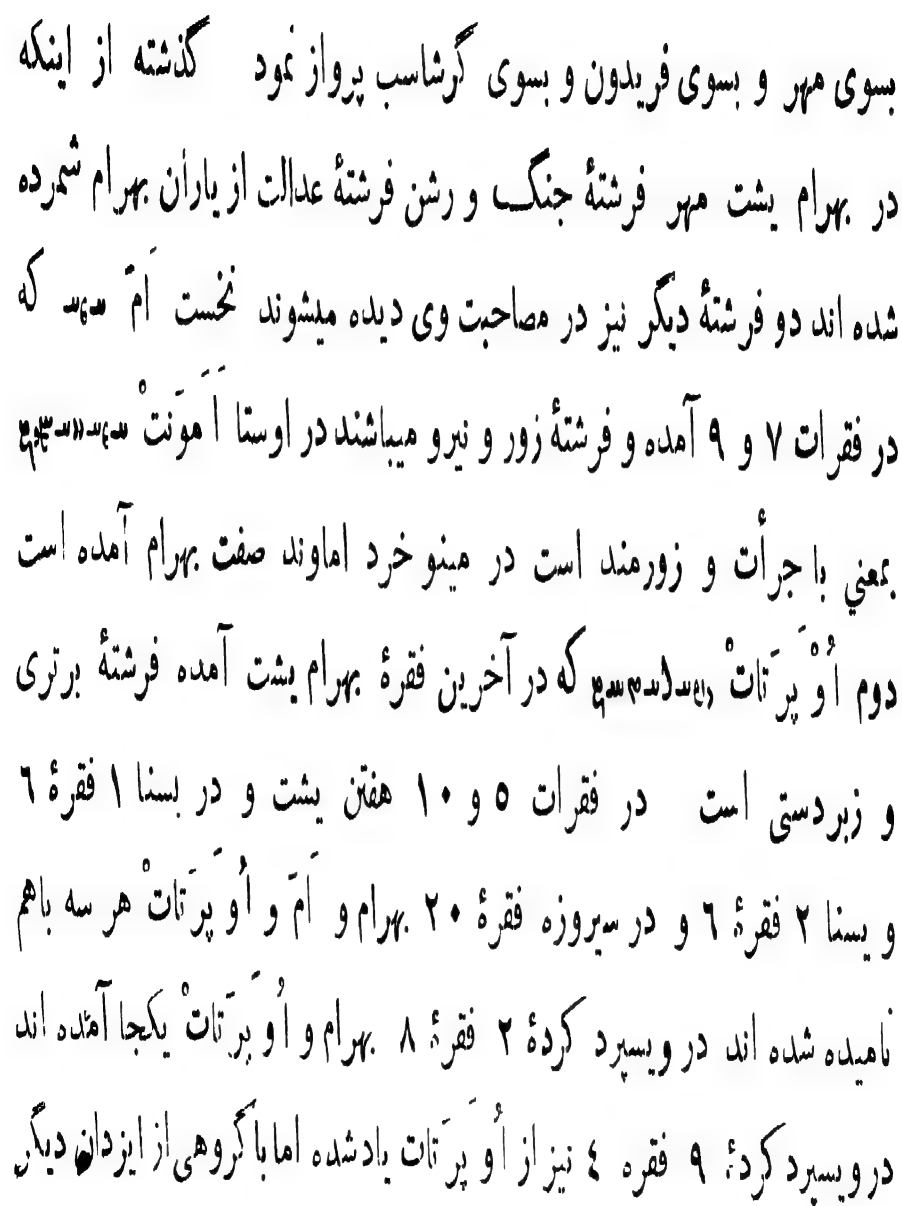 بسوی مهر و بسوی فریدون و بسوی گرشاسب پرواز نمود گذشته از اینکه
در بهرام یشت مهر فرشتهٔ جنگ و رشن فرشتهٔ عدالت از یاران بهرام شمرده
شده اند دو فرشتهٔ دیگر نیز در مصاحبت وی دیده میشوند نخست اَمَ که
در فقرات ۷ و ۹ آمده و فرشتهٔ زور و نیرو میباشند در اوستا اَمَوَنتْ
بمعني با جرأت و زورمند است در مینو خرد اماوند صفت بهرام آمده است
دوم اُوْپَرَتاتْ که در آخرین فقرهٔ بهرام یشت آمده فرشتهٔ برتری
و زبردستی است در فقرات ٥ و ۱۰ هفتن یشت و در یسنا ۱ فقرهٔ ٦
و یسنا ۲ فقرهٔ ٦ و در سیروزه فقرهٔ ۲۰ بهرام و اَمَ و اُوپَرَتاتْ هر سه باهم
نامیده شده اند در ویسپرد کردهٔ ۲ فقرهٔ ۸ بهرام و اُوپَرَتاتْ یکجا آمده اند
در ویسپرد کردهٔ ۹ فقره ٤ نیز از اُوپَرَتات یادشده اما با گروهی از ایزدان دیگر